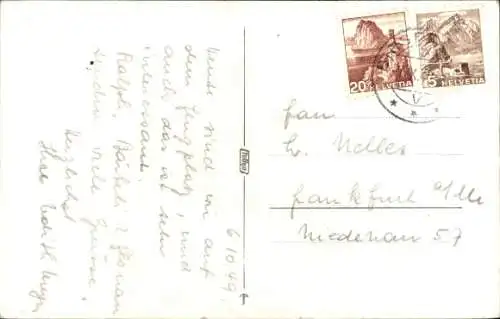 6 10 49.
Heute sind wir auf
dem Flugplatz, und
auch das ist sehr
interessant.
Ralph, Bärbel &
senden viele Grüsse,
Herzlichst
Ihre Edith
20 HELVETIA
5 HELVETIA
Frau
H. Nelles
Frankfurt a/M
Niedenau 57